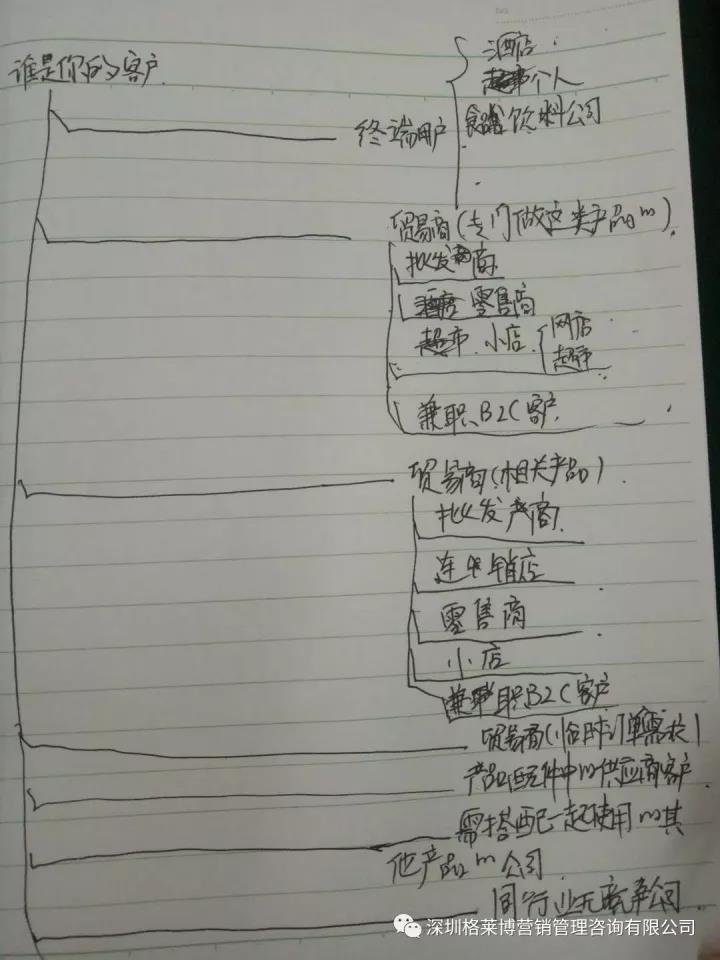 谁是你的客户
酒店
个人
终端用户
饮料公司
贸易商(专门做这类产品的)
批发商
零售商
超市、小店
网店
超市
兼职B2C客户
贸易商(相关产品)
批发商
连锁店
零售商
小店
兼职B2C客户
贸易商(临时订单需求)
产品配件中的供应商客户
需搭配一起使用的其
他产品的公司
同行业无竞争公司
深圳格莱博营销管理咨询有限公司